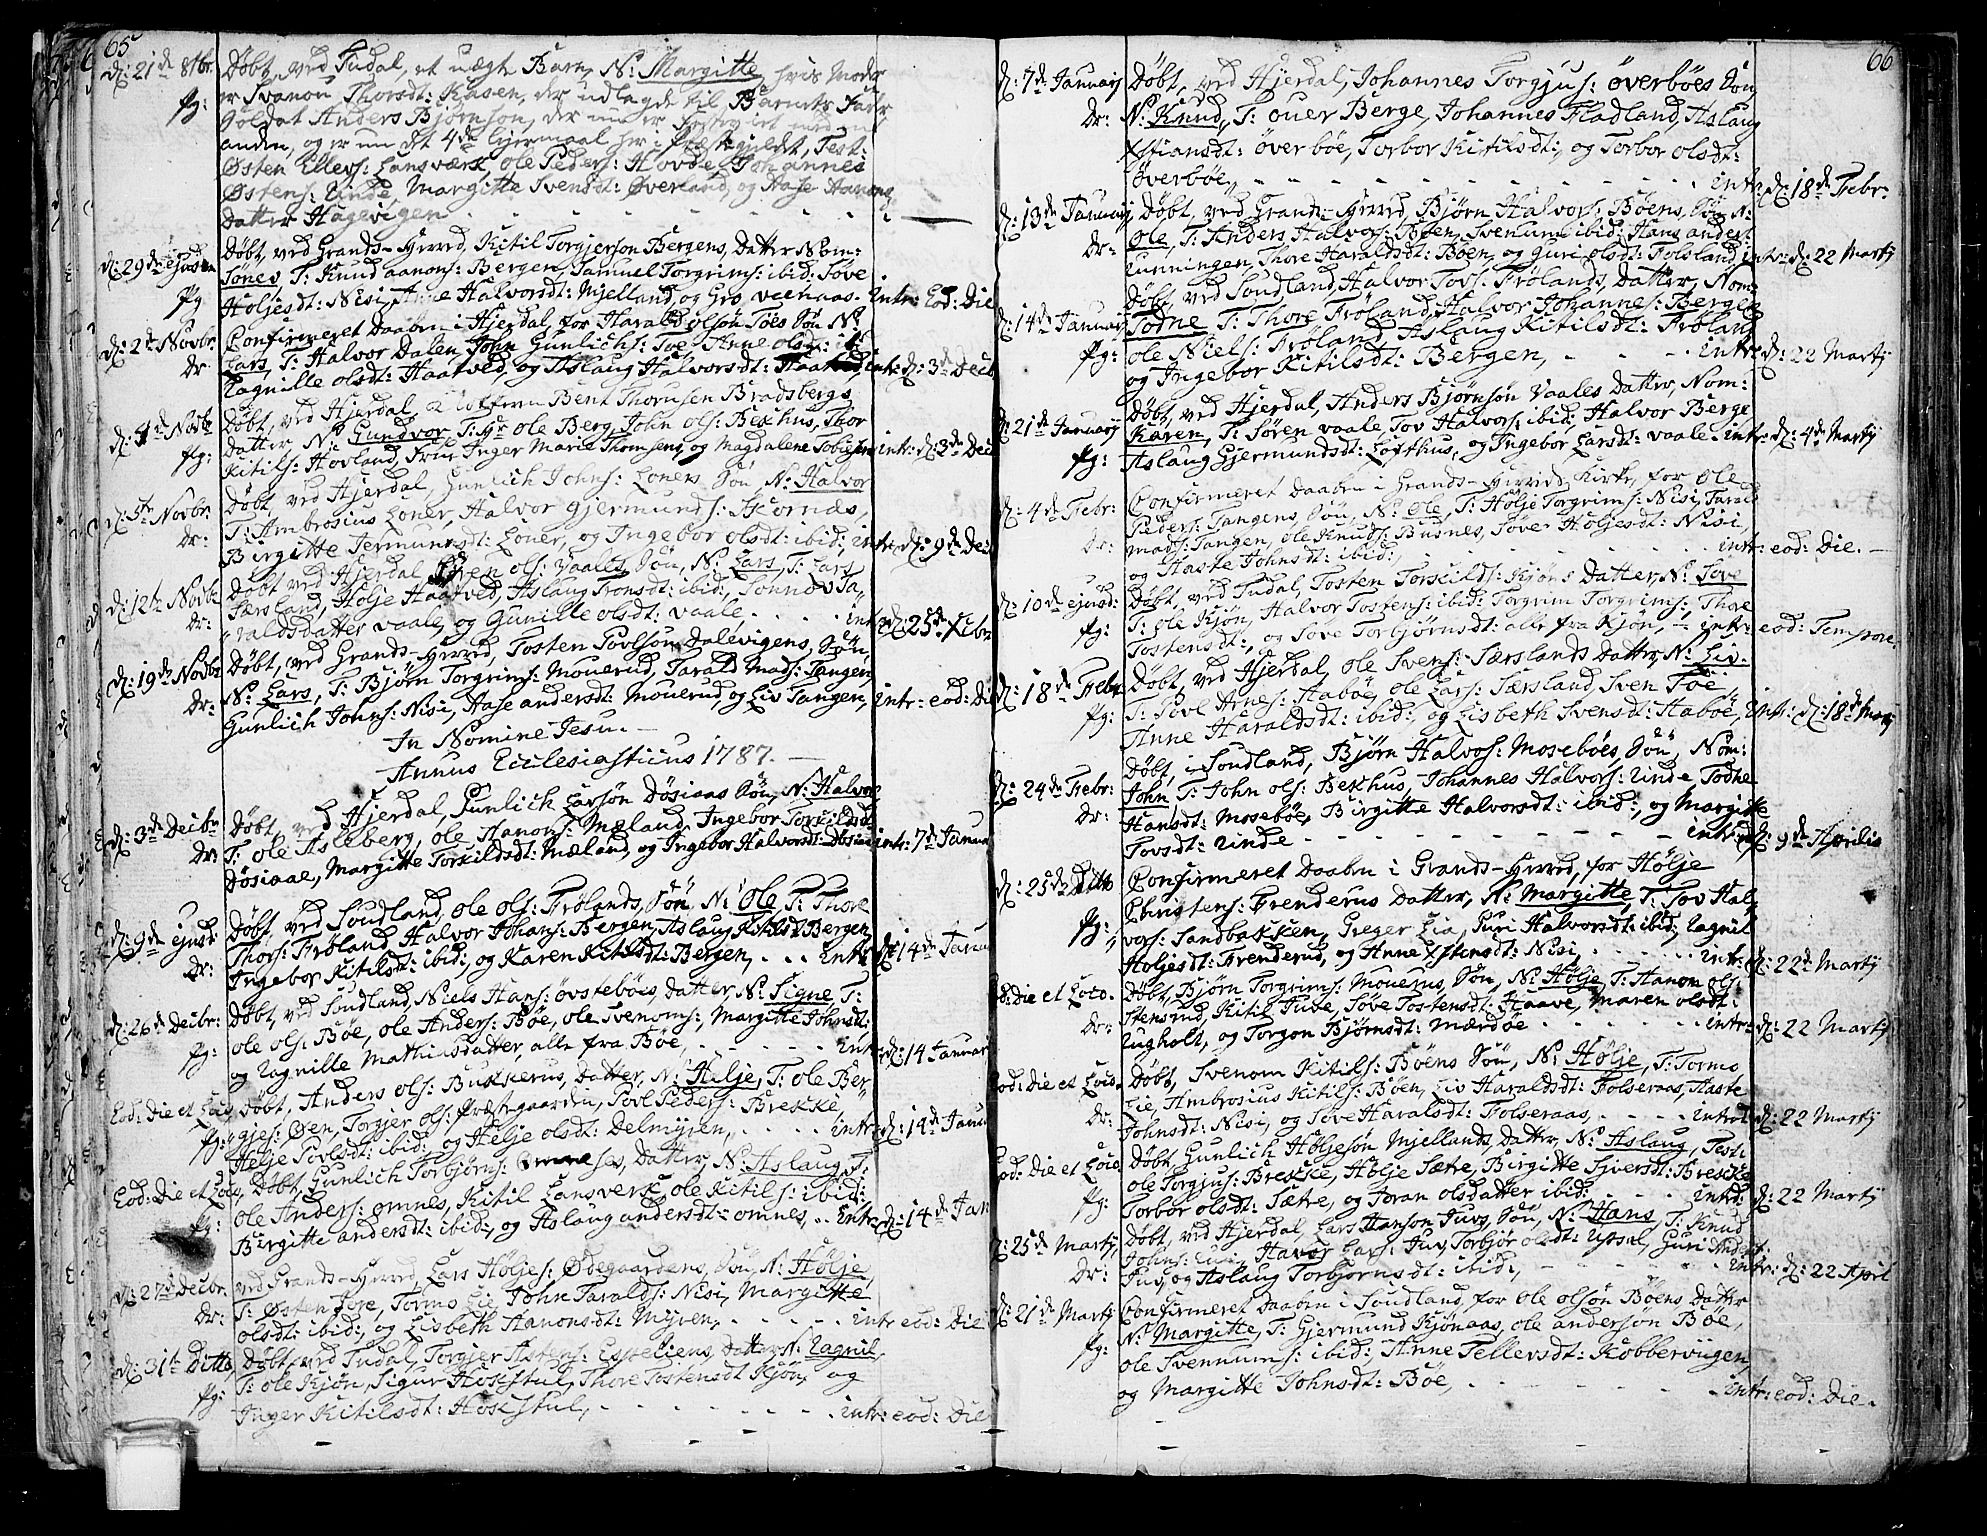 65
d: 21de 8tbr. Døbt, ved Tudal, et uægte Barn, N: Margitte, hvis Moder
pg: er Svanou Thorsdt: Kasen, der udlagde til Barnets Fader
Soldat Anders Bjørnsøn, der nu er
anden, og er nu det 4de Lejermaal her i Præstegieldet, Test:
Østen Ellevs: Lansværk, Ole Peders: Hovde, Johannes
Østens: Linde, Margitte Svensdt: Øverland, og Aase Aanons
Datter Hagevigen
d: 29de ejusdem Døbt, ved Grands-Herred, Kitil Torgjersøn Bergens, Datter Nom:
Sønev T: Knud aanons: Bergen, Samuel Torgrims: ibid: Søve
pg Høljesdt: Nisi, Anne Halvorsdt: Mjelland, og Gro veenaas. Intr: Eod: Die
d: 2de Novbr. Confirmeret Daaben i Hjerdal, for Harald olsøn Søes Søn N:
Dr: Lars, T: Halvor Dalen, John Gunlichs: Søe, Anne olsdt:
Ragnille olsdt: Haatved, og Aslaug Halvorsdt: Haatved, intr: d: 3de Decb
d: 4de Novbr Døbt, ved Hjerdal, Bent Thomsen Bradsbergs
Datter N: Gundvor T: Hr ole Berg, John ols: Bekhus, Thor
pg: Kitils: Hovland, Frue Inger Marie Thomsen, og Magdalene Tobiesen intr: d: 3de Dec
d: 5te Novbr: Døbt, ved Hjerdal, Gunlich Johns: Loners Søn, N: Halvor
T: Ambrosius Loner, Halvor Gjermunds: Skornæs,
Dr: Birgitte Jermundsdt: Loner, og Ingebor olsdt: ibid: intr: d: 9de Dec
d: 12te Novbr Døbt ved Hjerdal, Søren ols: Vaales Søn, N: Lars, T: Lars
Særsland, Hølje Haatved, Aslaug Tronsdt: ibid:, Sønnøv Ta,
Dr: raldsdatter vaale, og Gunille olsdt: vaale. intr: d: 25de Xbr
d: 19de Novbr Døbt, ved Grands-Herred, Tosten Povlsøn Dalevigens, Søn
N: Lars, T: Bjørn Torgrims: Mouerud, Tarald Mads: Tangen
Dr: Gunlich Johns: Nisi, Aase andersdt: Mouerud, og Liv Tangen, intr: eod: Die
In Nomine Jesu.
Annus Ecclesiasticus 1787.
d: 3de Decbr Døbt, ved Hjerdal, Gunlich Larsøn Dösiaas Søn, N: Halvor
Dr: T: ole Asleberg, ole Aanons: Mæland, Ingebor Torkildsdt
Dösiaae, Margitte Torkildsdt: Mæland, og Ingebor Halvorsdt: Dösiaae intr: 7de Janua
d: 9de ejusd: Døbt, ved Soudland, ole ols: Frølands, Søn, N: Ole, T: Thore
Thors: Frøland, Halvor Johans: Bergen, Aslaug Kitilsdt Bergen,
Dr: Ingebor Kitilsdt: ibid:, og Karen Kitilsdt: Bergen, Intr: d: 14de Janu
d: 26de Decbr: Døbt, ved Soudland, Niels Hans: övstebøes, Datter, N: Signe, T:
ole ols: Böe, ole Anders: Böe, ole Svenoms:, Margitte Johnsdt:
pg: og Ragnille Mathiasdatter, alle fra Böe, Intr: d: 14 Januar
Eod: Die et Loco, Døbt, Anders ols: Bukkerus, Datter, N: Helje, T: ole Ber
pg: gjes: Øen, Torgjer ols: Præstegaarden, Povl Peders: Brekke,
Helje Povlsdt: ibid: og Helje olsdt: Delmyren, intr: d: 14de Janu
Eod: Die et Loco, Døbt, Gunlich Torbjørns: Omneses, Datter, N: Aslaug, T:
ole Anders: omnes, Kitil Lansverk, ole Kitils: ibid:,
pg: Birgitte andersdt: ibid:, og Aslaug andersdt: omnes, Intr: d: 14de Jan
d: 27de Decbr. ved Grands-Herred, Lars Høljes: Ødegaardens, Søn, N: Hølje,
Dr: T: Østen Fore, Tormo Lie, John Taralds: Nisi, Margitte
olsdt: ibid:, og Lisbeth Aanonsdt: Myren, intr: eod: Die
d: 31te Ditto, Døbt, ved Tudal, Torgjer Astens: Espeliens, Datter N: Ragnil,
T: ole Kjøn, Sigur Høkstul, Thore Tostensdt Kjøn, og
pg: Inger Kitilsdt: Høkstul, intr: eod: Die
66
d: 7de Januarij Døbt, ved Hjerdal, Johannes Torgjus: överböes Søn,
Dr: N: Knud, T: ouer Berge, Johannes Fladland, Aslaug
Xstiansdt: överböe, Torbor Kitilsdt:, og Torbor olsdt:
överböe, intr: d: 18de Febr:
d: 13de Januarij Døbt, ved Grands-Herred, Bjørn Halvors: Böens, Søn N:
Dr: Ole, T: Anders Halvors: Böen, Svenum ibid: Hans anders:
Runningen, Thore Haraldsdt: Böen, og Guri olsdt: Folsland, intr: d: 22 Martij
d: 14de Januarij Døbt, ved Soudland, Halvor Tovs: Frølands, Datter, Nom:
Todne, T: Thore Frøland, Halvor Johannes: Bergen
pg: ole Niels: Frøland, Aslaug Kitilsdt: Frøland
og Ingebor Kitilsdt: Bergen, intr: d: 22 Martij
d: 21de Januarij Døbt, ved Hjerdal, Anders Bjørnsøn Vaales Datter, Nom:
Karen, T: Søren vaale, Tov Halvors: ibid: Halvor Berge
pg: Aslaug Gjermundsdt: Løfthus, og Ingebor Larsdt: vaale. intr: d: 4de Martij
d: 4de Febr: Confirmeret Daaben i Grands-Herred, Kirke, for Ole
Peders: Tangens, Søn, N: Ole, T: Hølje Torgrims: Nisi, Tarald
Dr: mads: Tangen, ole Knuds: Busnes, Søver Høljesdt: Nisi,
og Haste Johnsdt: ibid:, intr: eod: Die.
d: 10de ejusd: Døbt, ved Tudal, Tosten Torskilds: Kjøns Datter, N: Søve
pg: T: ole Kjøn, Halvor Tostens: ibid: Torgrim Torgrims:, Thore
Tostensdt:, og Søve Torbjørnsdt: alle fra Kjøn, intr: eod: Tempore.
d: 18de Febr. Døbt, ved Hjerdal, ole Svens: Særslands Datter, N: Liv.
pg: T: Povl Arnes: Haböe, ole Lars: Særsland, Sven Søe,
Anne Haraldsdt: ibid:, og Lisbeth Svensdt: Haböe, Intr: d: 18de Marj
d: 24de Febr: Døbt, i Soudland, Bjørn Halvors: Moseböes, Søn, Nom:
John, T: John ols: Bekhus, Johannes Halvors: Linde, Todne
Dr: Hansdt: Moseböe, Birgitte Halvorsdt: ibid:, og Margitte
Tovsdt: Linde intr: d: 9de Aprilis
d: 25de Ditto Confirmeret Daaben i Grands-Herred, for Hølje
Christens: Frenderus Datter, N: Margitte, T: Tov Hal,
pg: vors: Sandbakken, Greger Lia, Guri Halvorsdt: ibid; Ragnil
Holjesdt: Frenderud, og Anne Xstensdt: Nisi, intr: d: 22de Martij
Eod: Die et Loco. Døbt, Bjørn Torgrims: Mouerus, Søn, N: Hølje, T: Hanom ols:
Stensrud, Kitil Tuve, Søve Tostensdt: Haave, Maren olsdt:
Dr: Rugholt, og Torgon Bjørnsdt: Mærdöe intr: d: 22 Martij
Eod: Die et Loco, Døbt, Svenom Kitils: Böens Søn, N: Hølje, T: Tormo
Lie, Ambrosius Kitils: Böen, Liv Haraldsdt: Folseraas, Haste
Dr: Johnsdt: Nisi, og Søve Haralsdt: Folseraas, Introd: d: 22 Martij
Eod: Die et Loco Døbt, Gunlich Höljesøn Mjellands, Datter, N: Aslaug, Test:
ole Torgjus: Brekke, Hølje Sætre, Birgitte Sjversdt: Brekke
pg: Torbor olsdt: Sætre, og Joran olsdatter ibid: intrd: d: 22 Martij
d: 25de Martij, Døbt, ved Hjerdal, Lars Hansøn Juvs, Søn, N: Hans, T: Knud
Johns: Lui, Havor Lars: Juv, Torbjør olsdt: Upsal, Guri Andersdt:
Dr: Juv, og Aslaug Torbjornsdt: ibid:, intr: d: 22 April
d: 21de Martij Confirmeret Daaben i Soudland, for ole olsøn Böens Datter
N: Margitte, T: Gjermund Kjønaas, ole andersøn Böe,
pg: ole Svennums: ibid: Anne Tellevsdt: Kobbervigen,
og Margitte Johnsdt: Böe, intr: eod: Die.